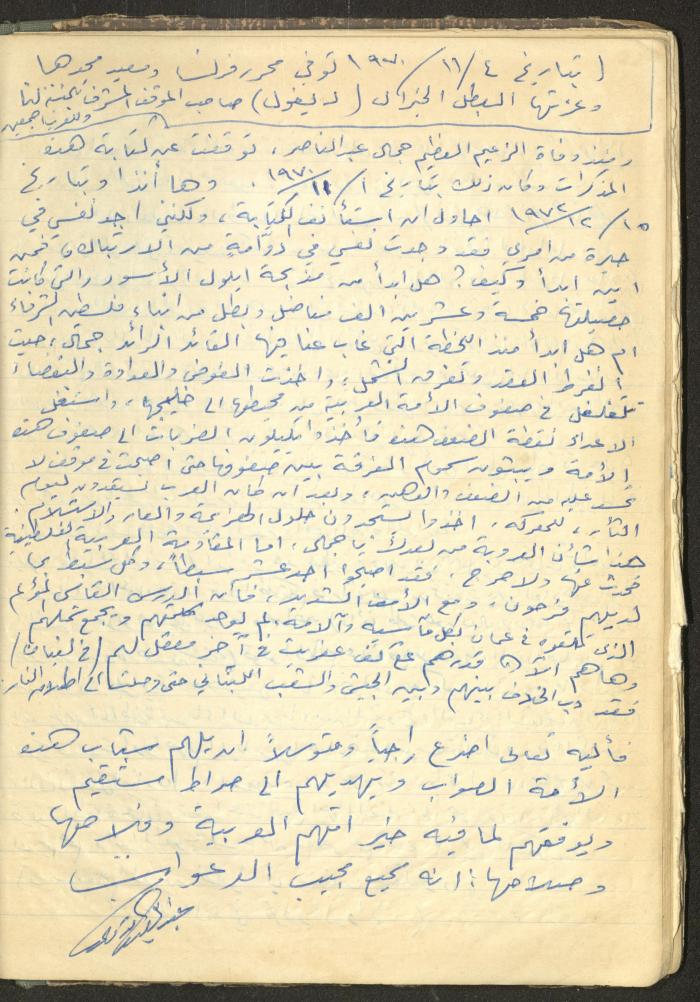 ( بتاريخ ٤/ ١١/ ١٩٧٠ توفي محرر فرنسا ومعيد مجدها
وعزتها البطل الجنرال ( ديغول ) صاحب الموقف المشرف بالنسبة لنا
وللعرب اجمعين
منذ وفاة الزعيم العظيم جمال عبد الناصر ، توقفت عن كتابة هذه
المذكرات وكان ذلك بتاريخ ١/ ١١/ ١٩٧٠ . وها أنذا وبتاريخ
١٥/ ١٢/ ١٩٧٢ احاول ان استأنف الكتابة ، ولكنني اجد نفسي في
حيرة من امري فقد وجدت نفسي في دوامة من الارتباك ، فمن
اين ابدأ وكيف ؟ هل ابدأ من مذبحة ايلول الأسود والتي كانت
حصيلتها خمسة وعشرين الف مناضل وبطل من ابناء فلسطين الشرفاء
ام هل ابدأ منذ اللحظة التي غاب عنا فيها القائد الرائد جمال ، حيث
انفرط العقد وتفرق الشمل ، واخذت الفوضى والعداوة والبغضاء
تتغلغل في صفوف الأمة العربية من محيطها الى خليجها ، واستغل
الاعداء نقطة الضعف هذه فأخذوا يكيلون الضربات الى صفوف هذه
الأمة ويبثون سموم التفرقة بين صفوفها حتى اصبحت في موقف لا
تحسد عليه من الضعف والوهن ، وبعد ان كان العرب يستعدون ليوم
الثأر ، للمعركة ، اخذوا يستجدون حلول الهزيمة والعار والاستسلام
هذا شأن العروبة من بعدك يا جمال ، اما المقاومة العربية الفلسطينية
فحدث عنها ولا حرج . فقد اصبحوا احد عشر سبطا ، وكل سبط بما
لديهم فرحون ، ومع الأسف الشديد ، فان الدرس القاسي المؤلم
الذي تلقوه في عمان بكل مآسيه وآلامه لم يوحد كلمتهم ويجمع شملهم
وها هم الآن قدرهم على كف عفريت في آخر معقل لهم ( في لبنان )
فقد دب الخلاف بينهم وبين الجيش والشعب اللبناني حتى وصلت الى اطلاق النار
فاليه تعالى اضرع راجياً ومتوسلاً ان يلهم شباب هذه
الأمة الصواب ويهديهم الى صراط مستقيم
ويوفقهم لما فيه خير امتهم العربية وفلاحها
وصلاحها ؛ انه سميع مجيب الدعوات